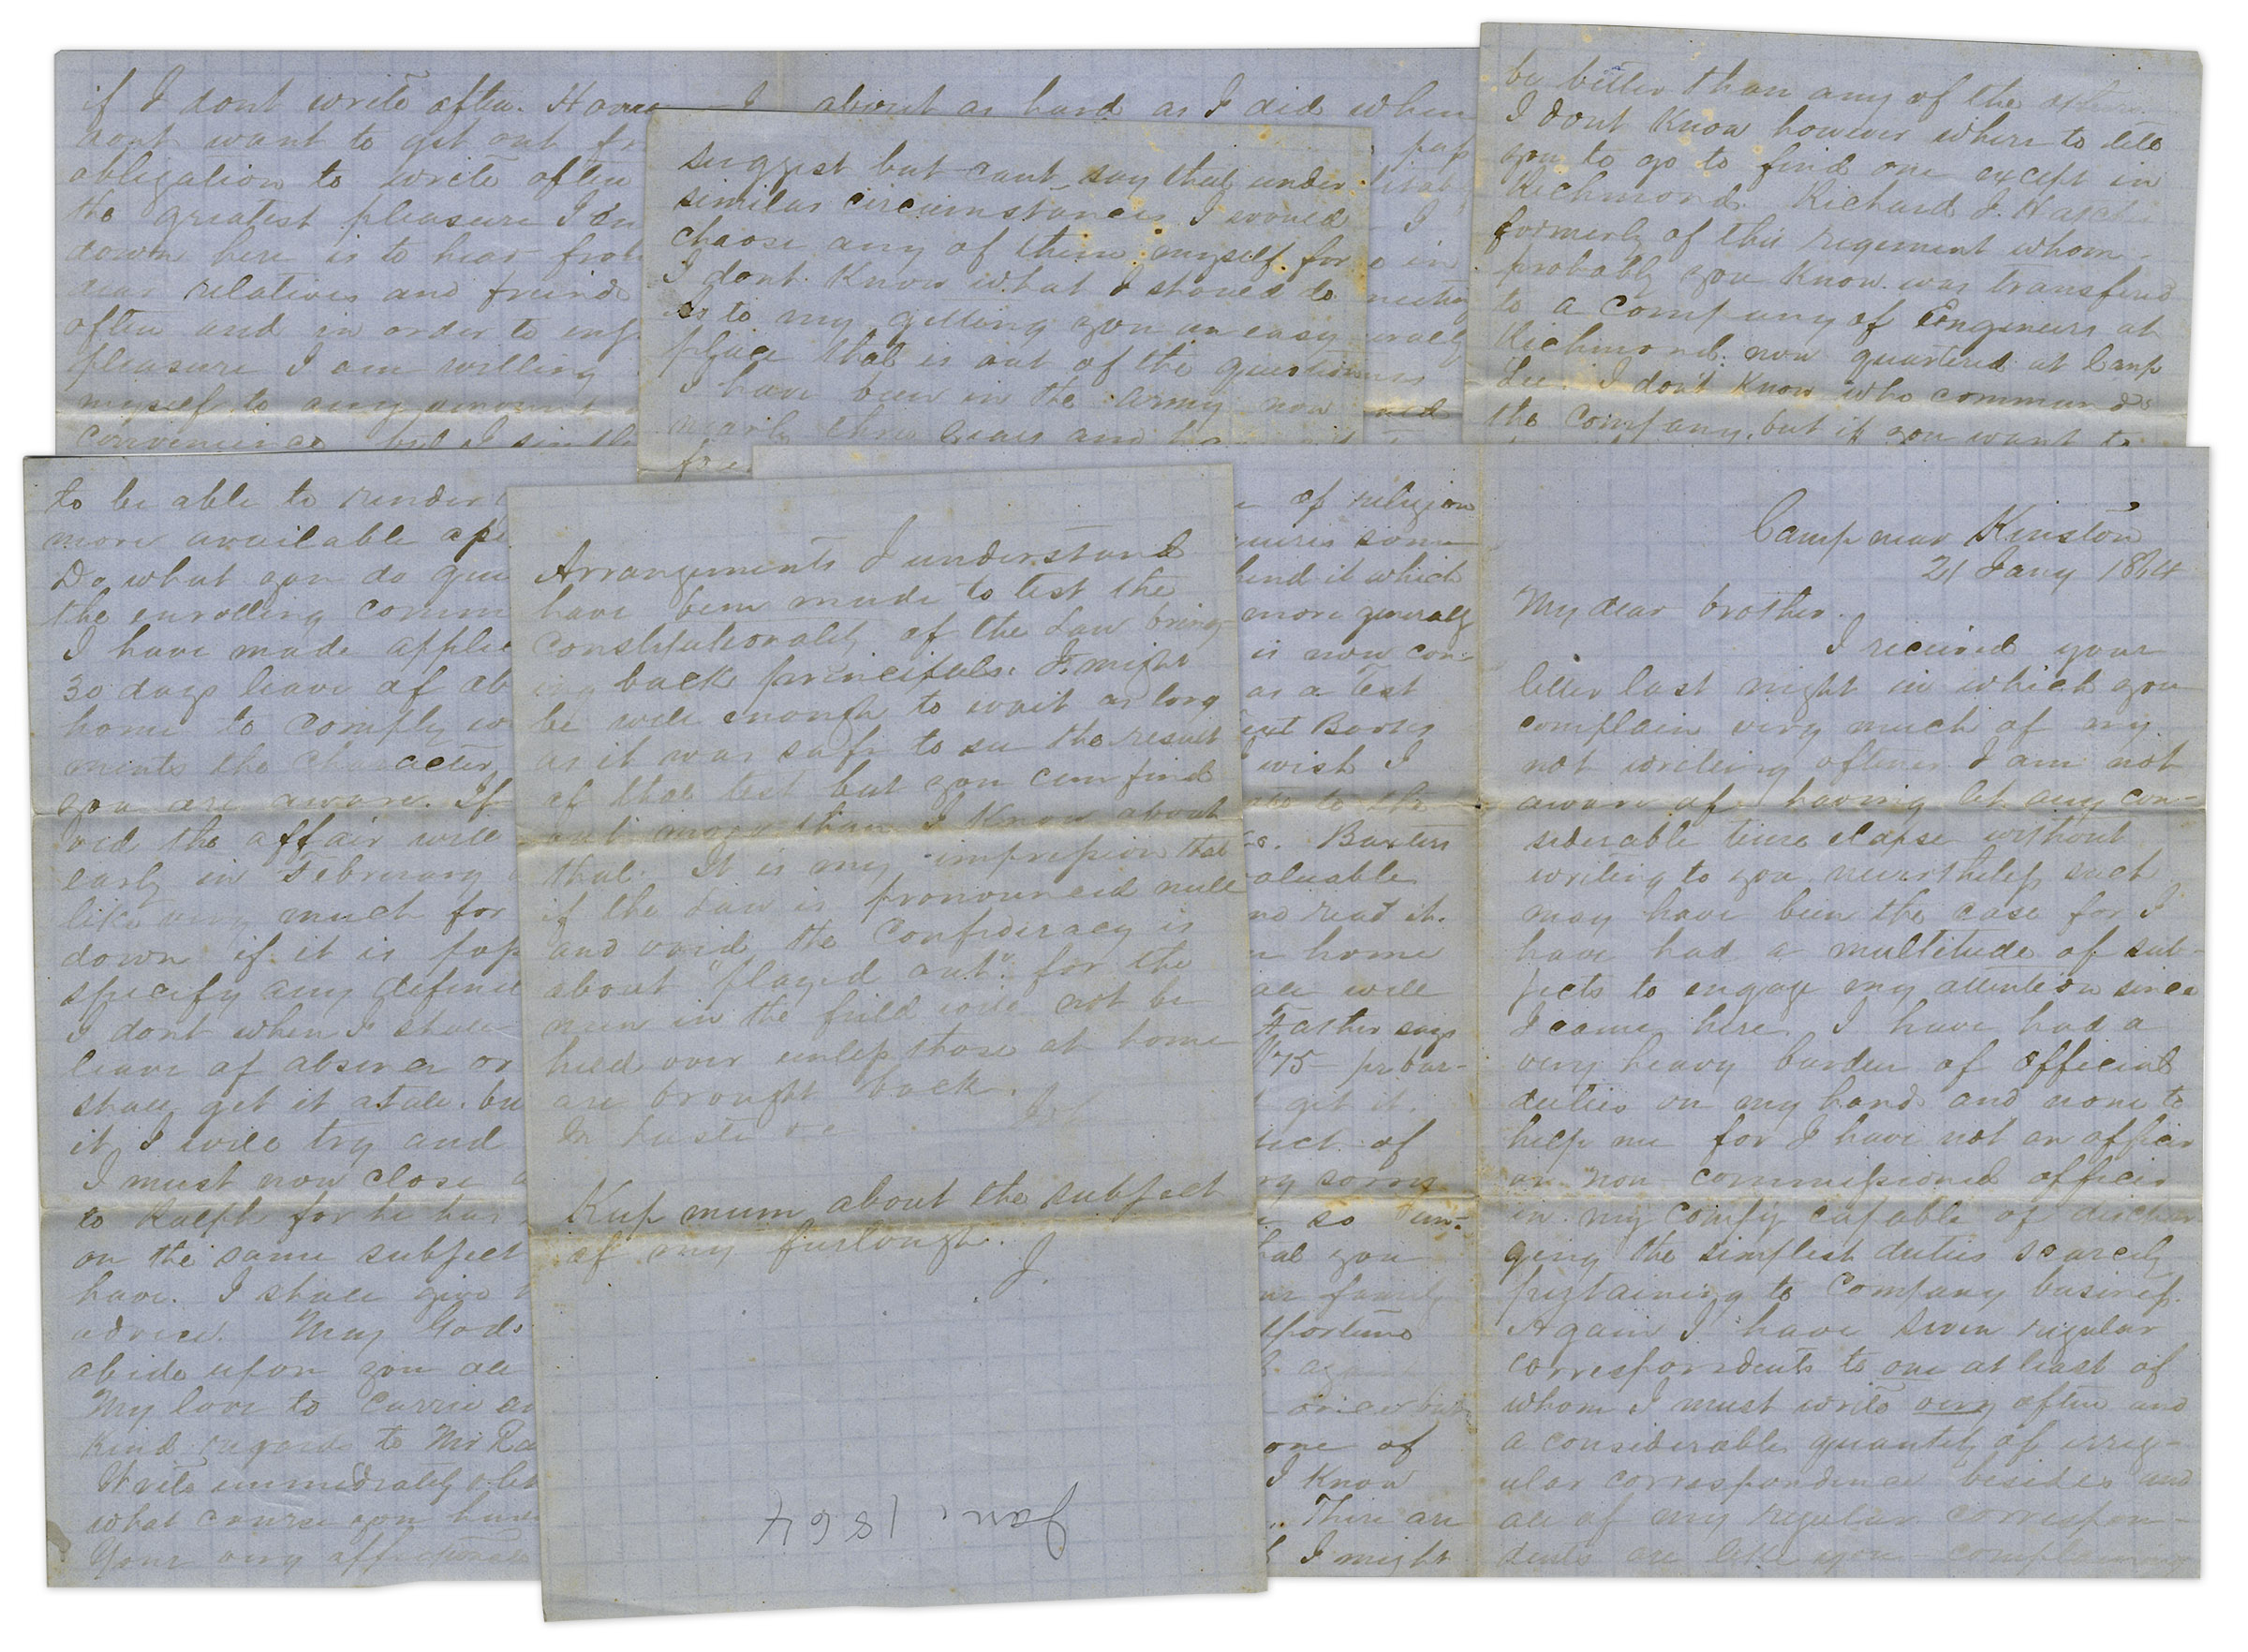 Camp near Kinston
21 Jany 1864
My dear brother.
I received your
letter last night in which you
complain very much of my
not writeing oftener I am not
aware of having let any con-
siderable time elapse without
writing to you nevertheless such
may have been the case for I
have had a multitude of sub-
jects to engage my attention since
I came here. I have had a
very heavy burden of official
duties on my hands and none to
help me for I have not an officer
or non-commissioned officer
in my compy capable of dischar
ging the simplest duties scarcely
pertaining to Company business.
Again I have seven regular
correspondents to one at least of
whom I must write very often and
a considerable quantity of irreg-
ular correspondence besides and
all of my regular correspon-
dents are like you complaining
if I dont write often. Howe
dont want to get out f
obligation to write often
the greatest pleasure I en
down here is to hear fro
dear relatives and freinds
often and in order to enj
pleasure I am willing
myself to any amount
convenience but I
I about as hard as I did when
pap
I
in
of religion
uires some
hend it which
more generally
is now con-
as a Test
ext Books
I wish I
to the
Baxters
aluable
nd read it.
home
all will
Father says
$75 pr bar-
get it.
ject of
ry sorry
so un-
hat you
ur family
pportune
again
one of
I know
There are
I might
suggest but cant say that under
similar circumstances I would
choose any of them myself. for
I dont Know what I should do
As to my getting you an easy
place that is out of the question
I have been in the army now
nearly three years and
be better than any of the others.
I dont Know however where to tell
you to go to find one except in
Richmond. Richard J.
formerly of this regement whom
probably you know was transferd
to a company of Engineers at
Richmond. now quartered at Camp
Lee. I don't Know who commands
the company, but if you want to
to be able to render
more available
Do what you do
the enrolling comm
I have made applic
30 days leave of ab
home to comply w
ments the character
you are aware. If
ved the affair will
early in February
like very much for
down if it is pos
specify any definit
I dont when I shall
leave of absence or
shall get it atall. bu
it I will try and
I must now close
to Ralph for he has
on the same subject
have. I shall give h
advice. May Gods
abide upon you all
My love to Carrie an
kind regards to Mr
Write immediately & let
what course you
Your very affectionate
Arrangements I understand
have been made to test the
constitutionality of the Law bring-
ing back principals. It might
be well enough to wait as long
as it was safe to see the result
of that test but you can find
out more than I Know about
that. It is my impression that
if the Law is pronounced null
and void the Confederacy is
about "played out". for the
men in the field will not be
held over unless those at home
are brought back.
In haste &c
Keep mum about the subject
of my furlough.
J.
Jan. 1864